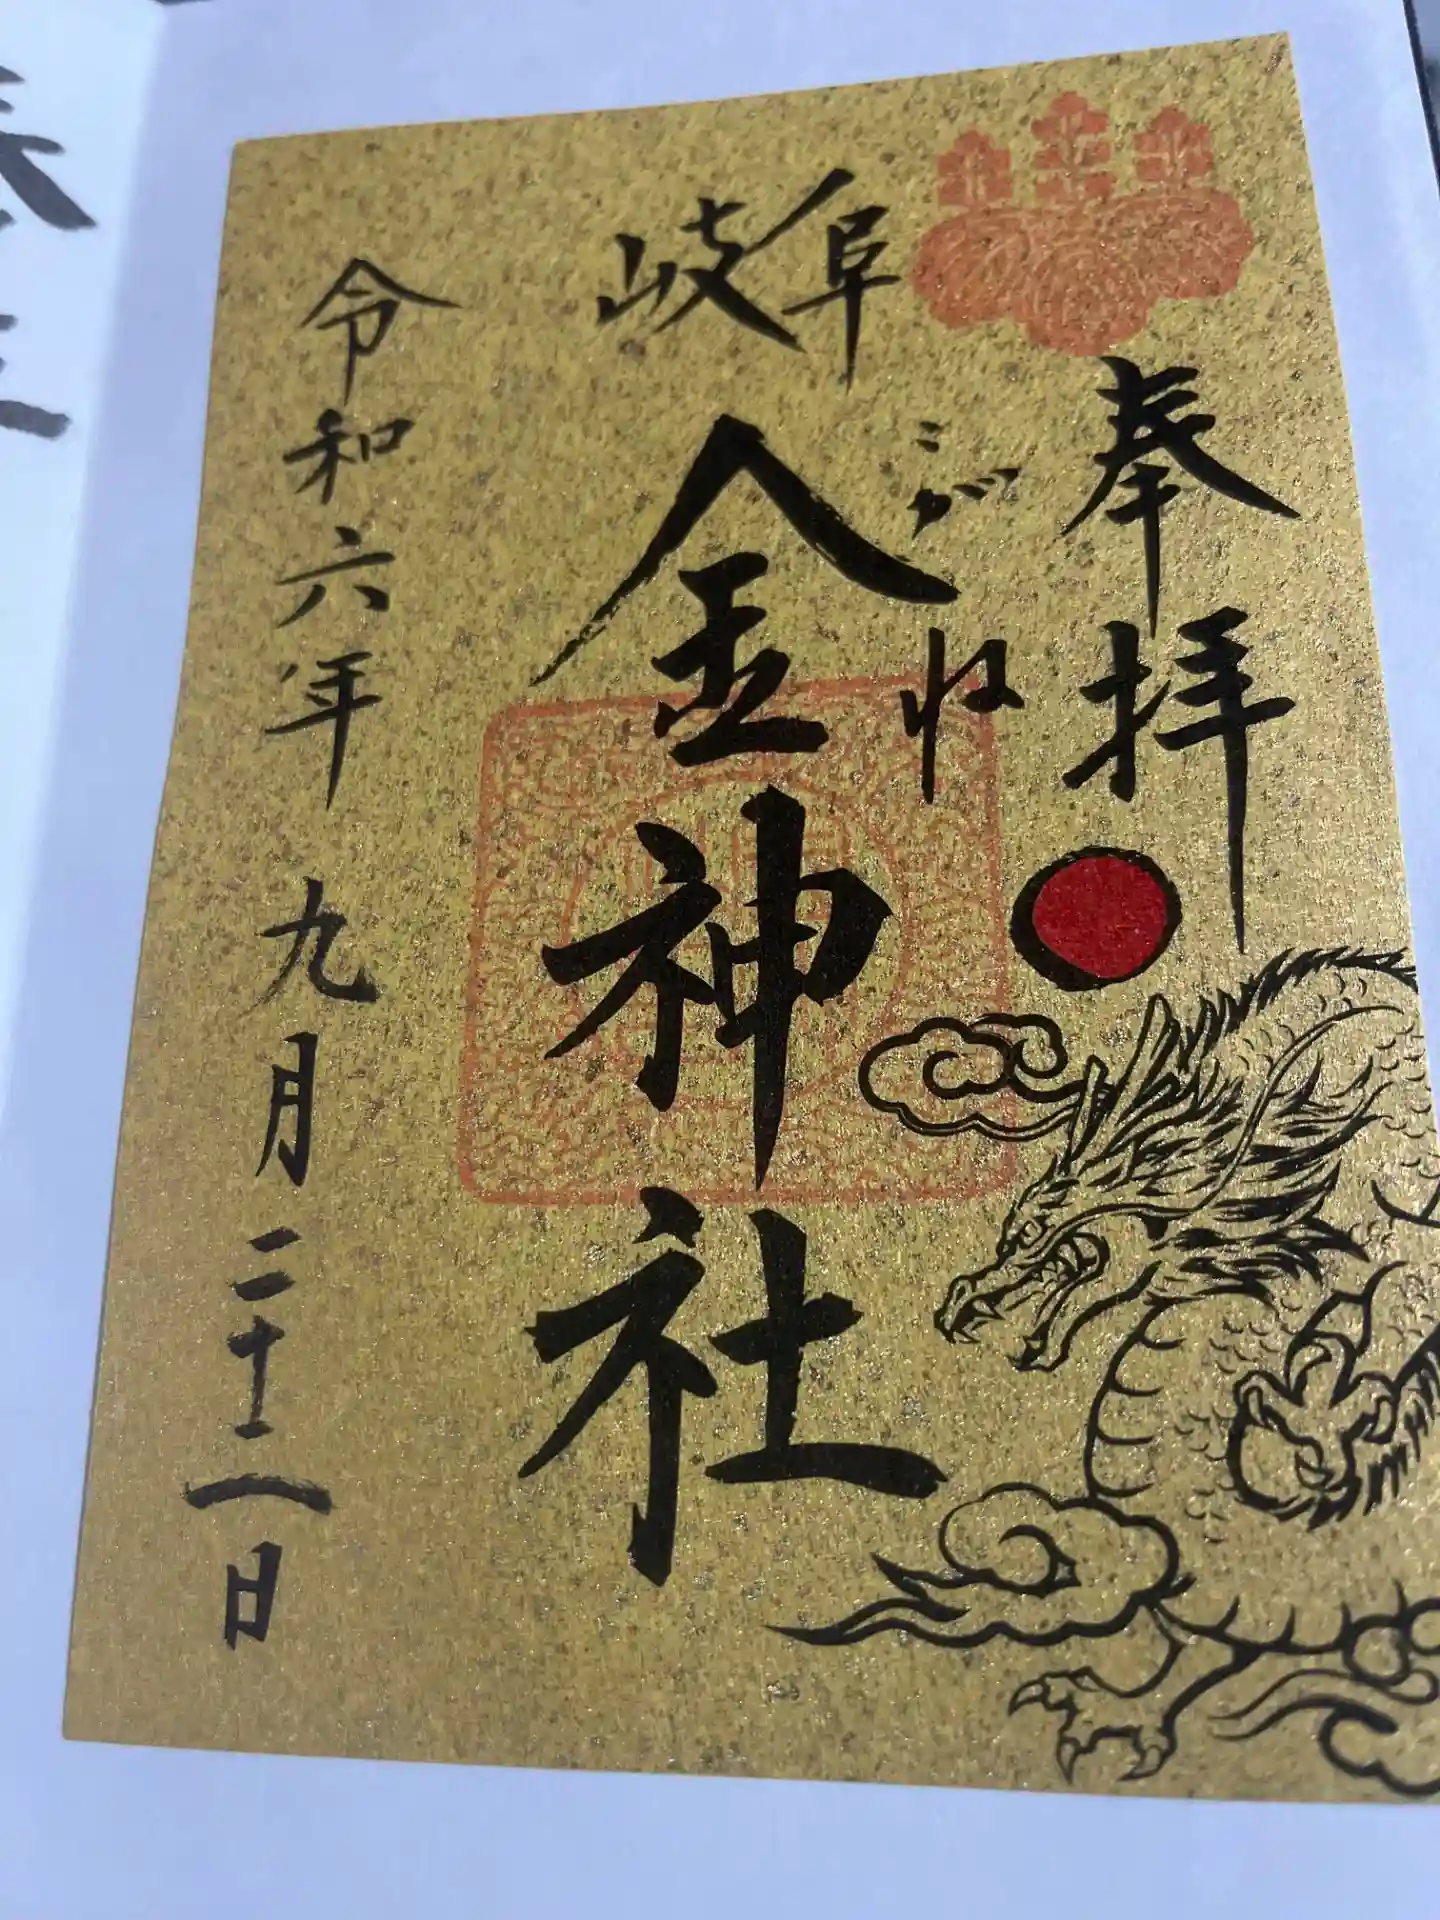 奉拝
岐阜
こがね
金神社
令和六年 九月二十二日